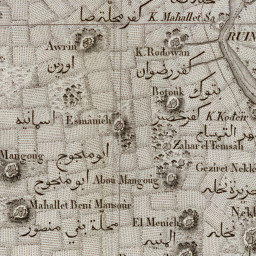 كفر محلة صا
K. Mahallet Sa
RUIN
Awrin
اورين
K. Rodowan
كفر رضوان
Botouk
بتوك
Esmanieh
اسمانيه
كفر خضير
K. Kodeir
Zahar el Temsah
Mangoug
ابو منجوج
Geziret Neklé
جزيرة نخله
Abou Mangoug
ابو منجوج
Mahallet Beni Mansour
محلة بني منصور
El Menieh
المنيه
Nekl
نخله